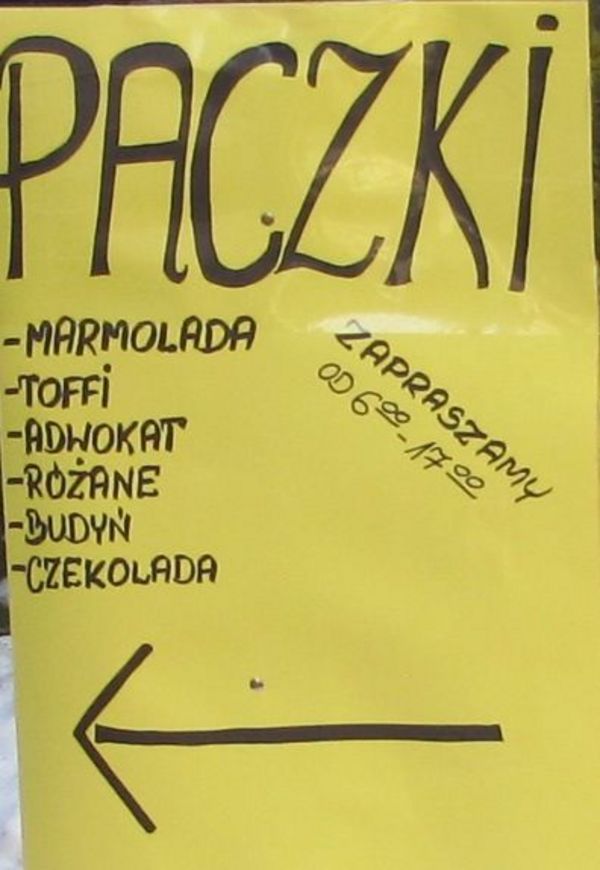 PĄCZKi
-MARMOLADA
-TOFFi
-ADWOKAT
-RÓŻANE
-BUDYŃ
-CZEKOLADA
ZAPRASZAMY
OD 6⁰⁰-17⁰⁰